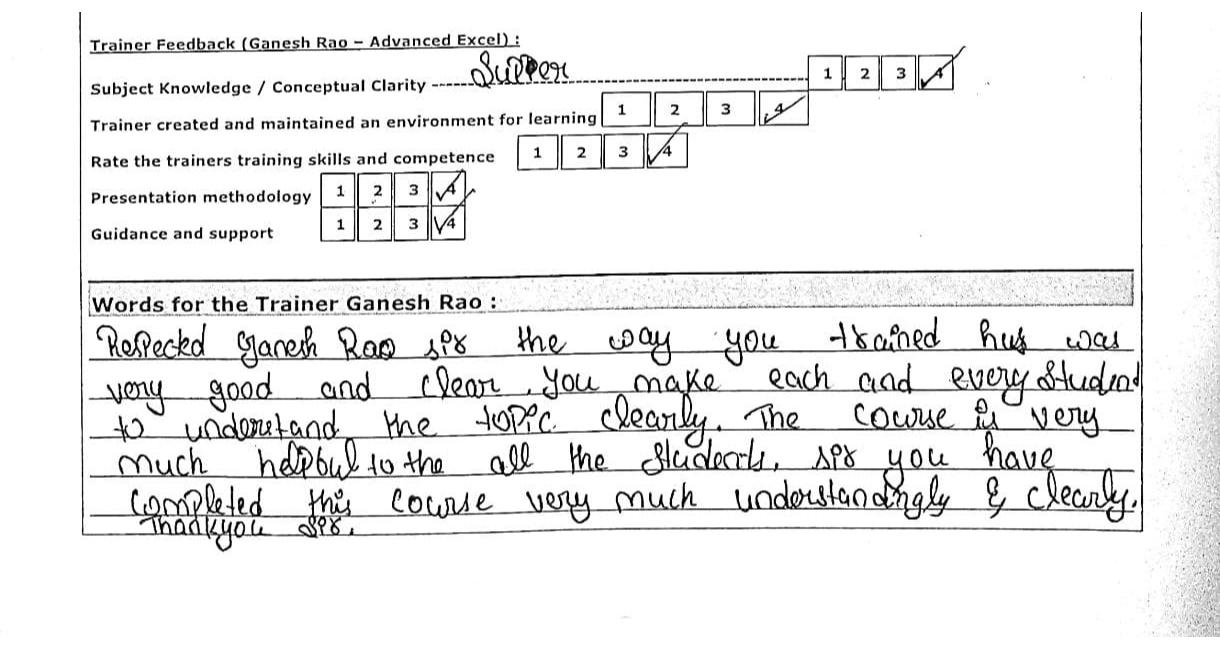 Trainer Feedback (Ganesh Rao – Advanced Excel) :
Subject Knowledge / Conceptual Clarity ------Supper------------------------------- 1 2 3 4
Trainer created and maintained an environment for learning 1 2 3 4
Rate the trainers training skills and competence 1 2 3 4
Presentation methodology 1 2 3 4
Guidance and support 1 2 3 4
Words for the Trainer Ganesh Rao :
Respected Ganesh Rao sir the way you trained hus was
very good and clear. You make each and every Student
to understand the topic clearly. The course is very
much helpbul to the all the Students, sir you have
Completed this course very much understandingly & clearly.
Thankyou sir.